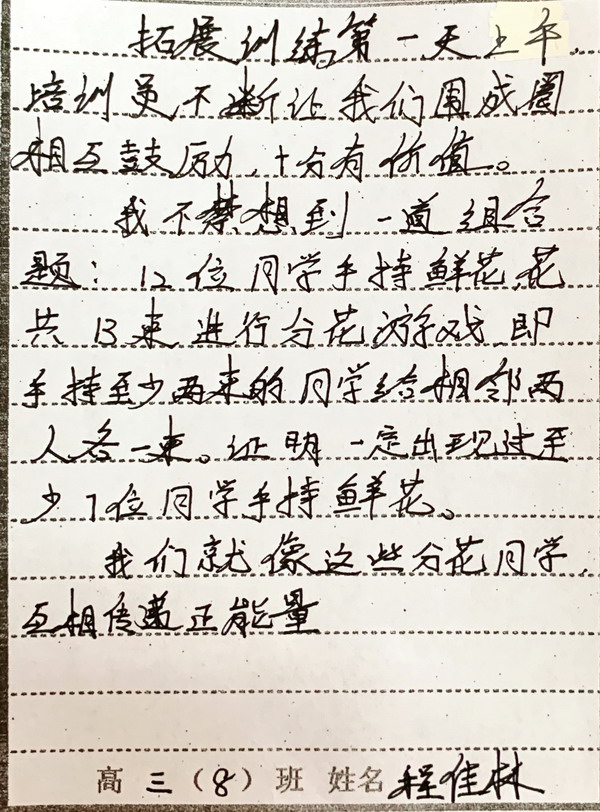 拓展训练第一天上午,
培训员不断让我们围成圈
相互鼓厉力,十分有价值。
我不禁想到一道组合
题:12位同学手持鲜花,花
共13束进行分花游戏,即
手持至少两束的同学给相邻两
人各一束。证明一定出现过至
少7位同学手持鲜花。
我们就像这些分花同学,
互相传递正能量
高三(8)班 姓名 程佳林